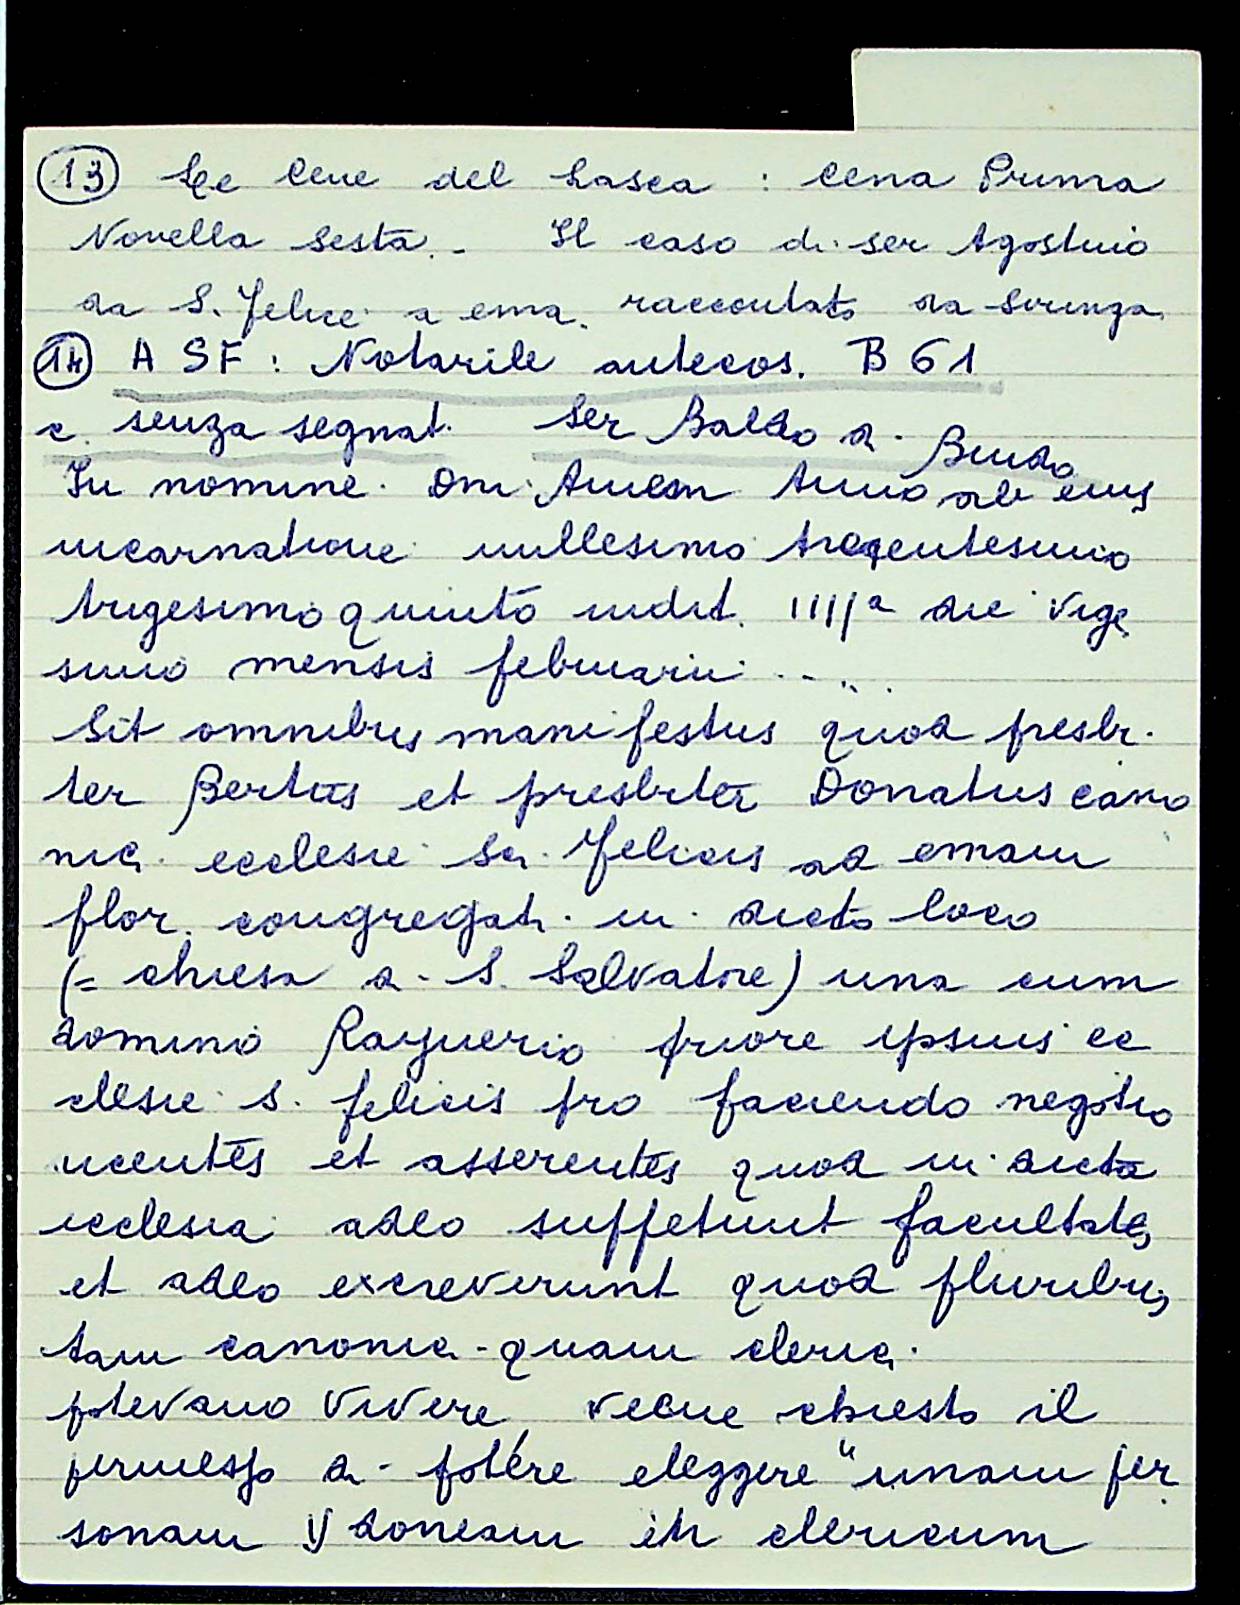 13 Le Cene del Lasca : Cena Prima
Novella Sesta. - Il caso di ser Agostino
da S. Felice a ema. raccontato da Siringa.
14 ASF : Notarile antecos. B 61
c. senza segnat. Ser Baldo di Bindo
In nomine Dni Amem Anno ab eius
incarnatione millesimo trecentesimo
trigesimo quinto indit. IIIIa die vige
simo mensis februarii ....
Sit omnibus manifestus quod presbi
ter Bertus et presbiter Donatus cano
nici ecclesie Sci. Felicis ad emam
flor. congregati in dicto loco
(= chiesa di S. Salvatore) una cum
domino Raynerio priore ipsius ec
clesie S. felicis pro faciendo negotio
ucentes et asserentes quod in dicta
ecclesia adeo suffetiunt facultates
et adeo excreverunt quod pluribus
tam canonici quam clerici
potevano vivere, venne chiesto il
permesso di potere eleggere "unam per
sonam ydoneam in clericum